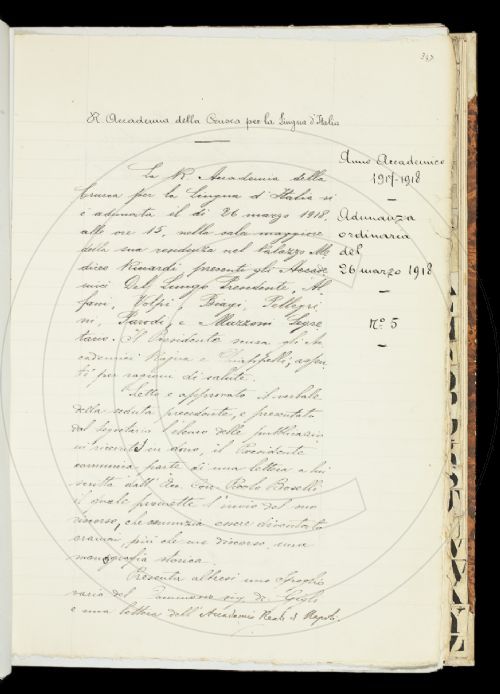 347
R. Accademia della Crusca per la Lingua d'Italia
Anno Accademico
1917-1918
Adunanza
ordinaria
del
26 marzo 1918
N.º 5
La R. Accademia della
Crusca per la Lingua d'Italia si
è adunata il dì 26 marzo 1918,
alle ore 15, nella sala maggiore
della sua residenza nel Palazzo Me-
diceo Riccardi, presenti gli Accade-
mici Del Lungo Presidente, Al-
fani, Volpi, Biagi, Pellegri-
ni, Parodi, e Mazzoni Segre-
tario. Il Presidente scusa gli Ac-
cademici Rajna e Chiappelli, assen-
ti per ragioni di salute.
Letto e approvato il verbale
della seduta precedente, e presentato
dal Segretario l'elenco delle pubblicazio-
ni ricevute in dono, il Presidente
comunica parte di una lettera a lui
scritta dall' On. Paolo Boselli
il quale promette l'invio del suo
discorso, che annunzia essere diventato
oramai, più che un discorso, una
monografia storica.
Presenta altresì uno spoglio
vario del sig. di Gigli
e una lettera dell'Accademia Reale di Napoli.